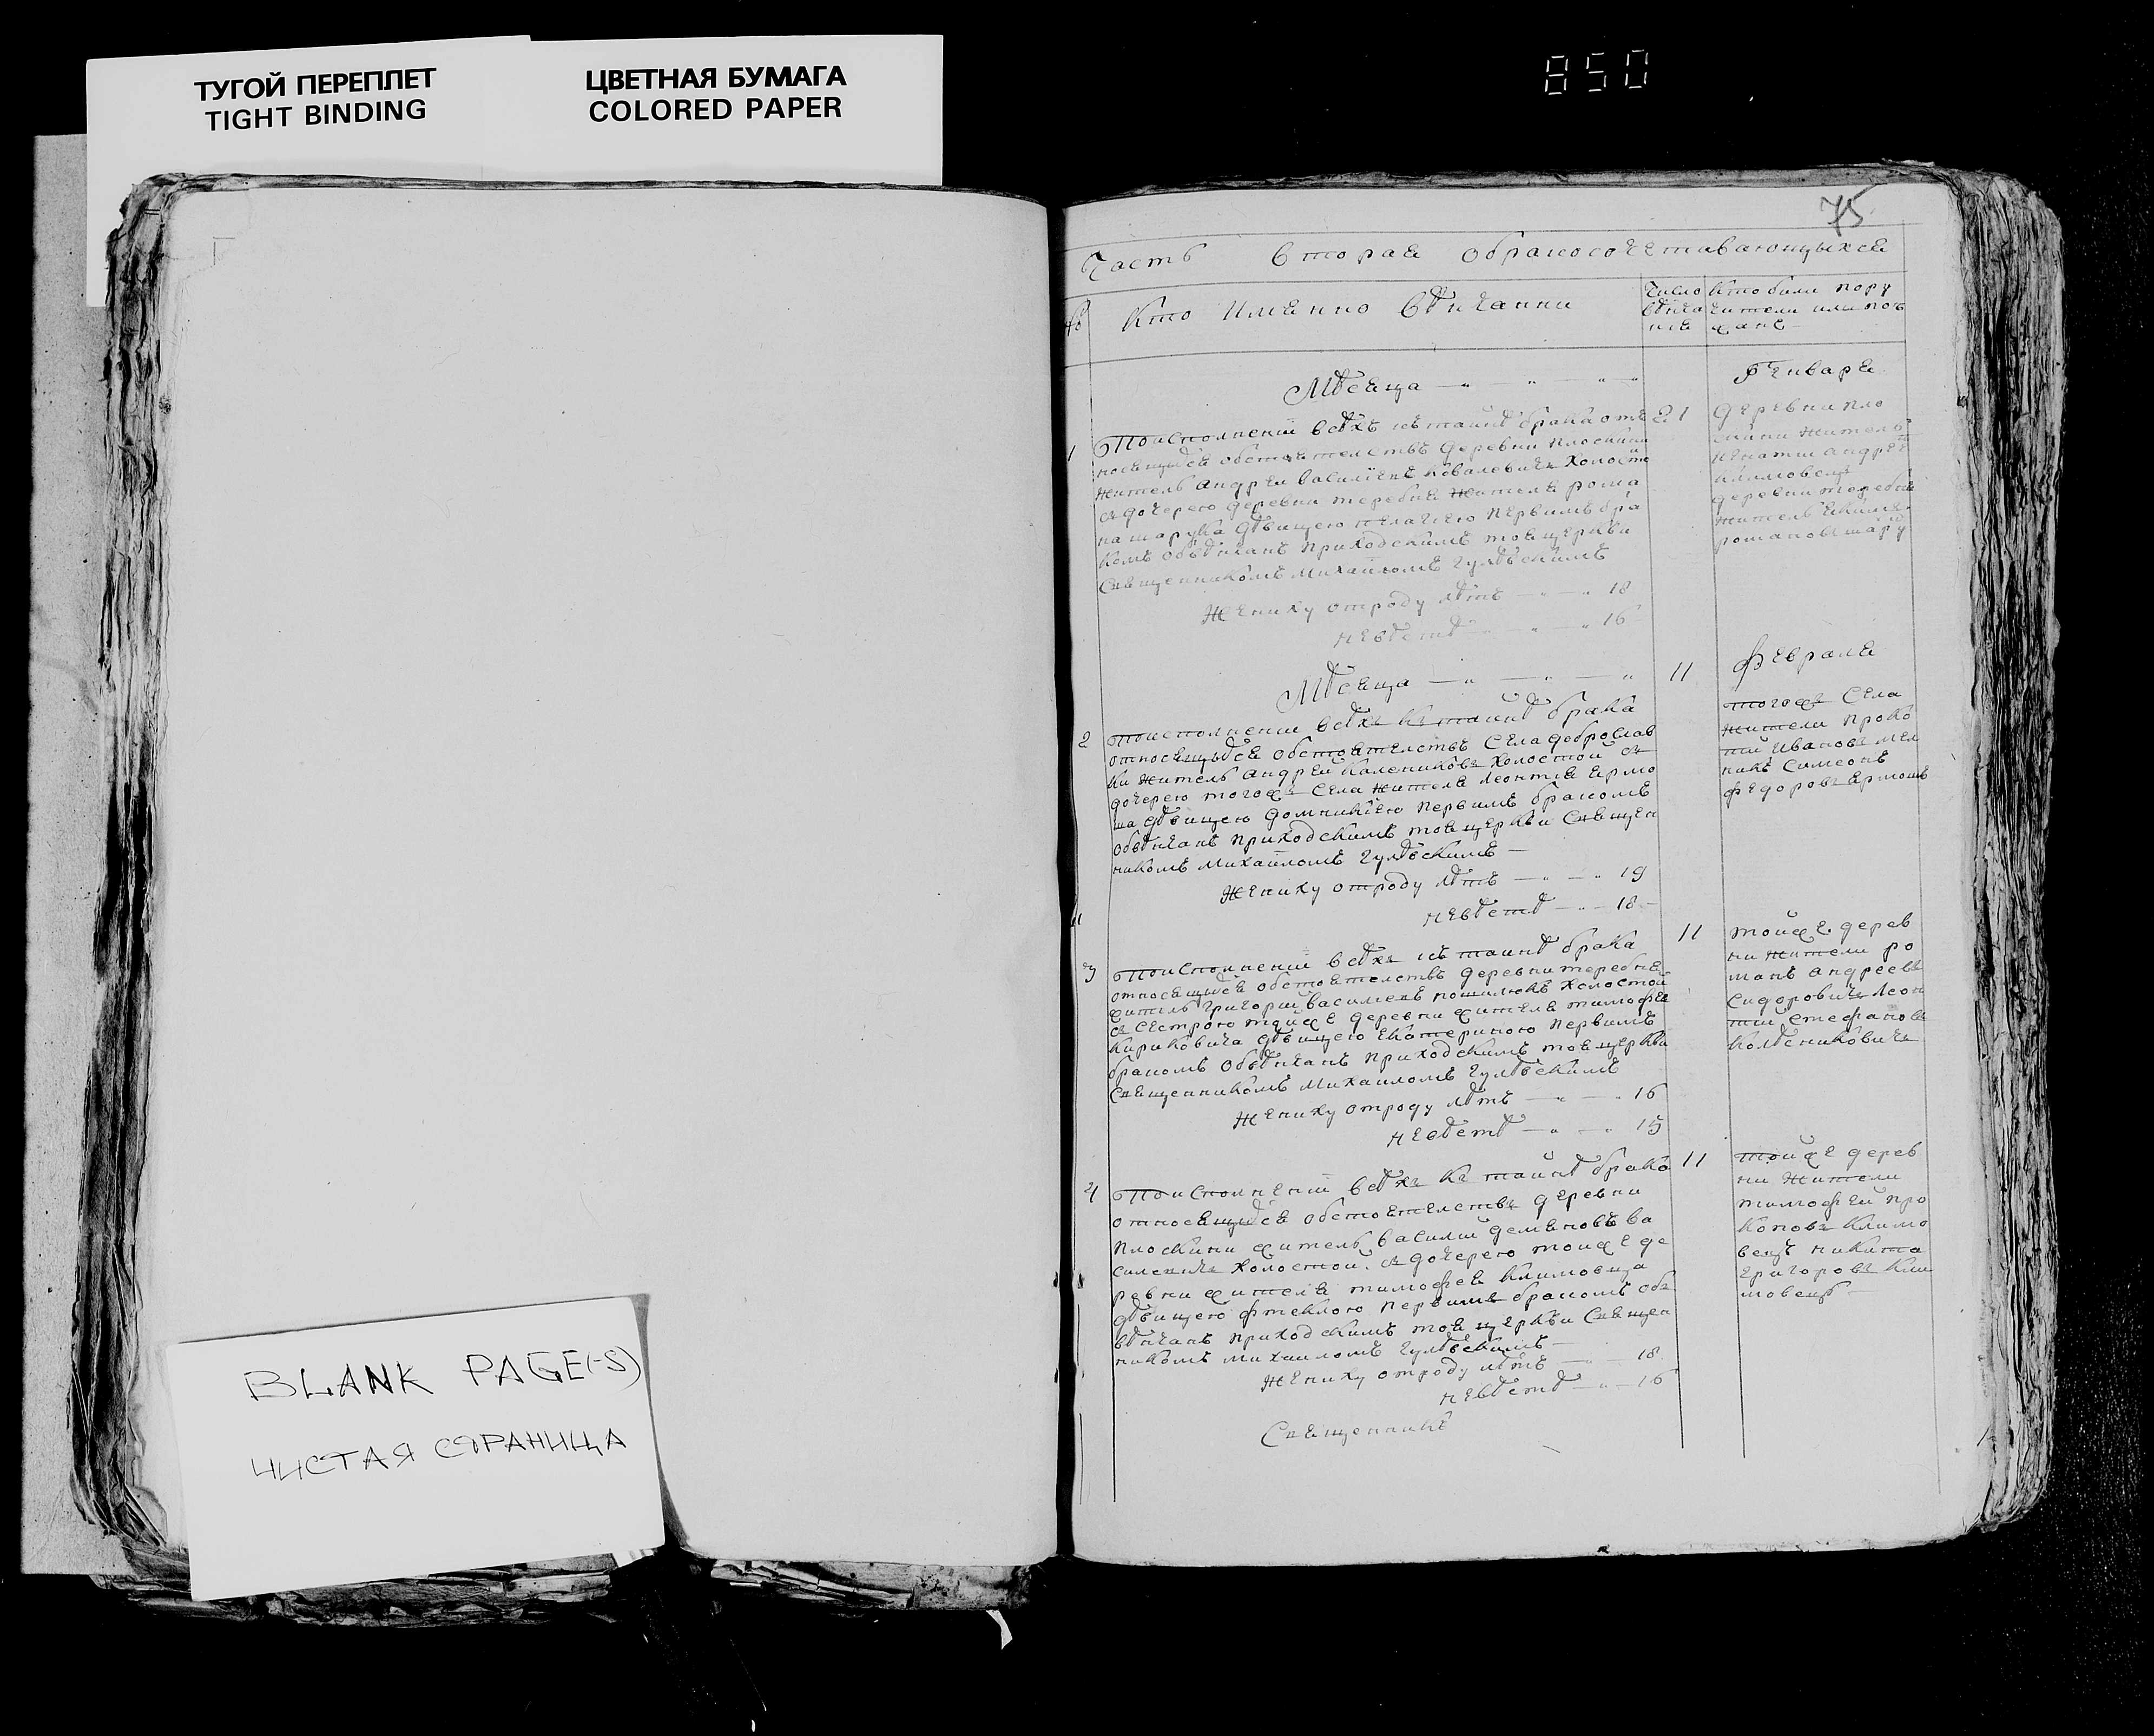 ТУГОЙ ПЕРЕПЛЕТ
TIGHT BINDING
ЦВЕТНАЯ БУМАГА
COLORED PAPER
850
75
Часть вторая обракосочетавающыхся
№ Кто Именно вѣнчанни
Число вѣнча ния
Кто били пору чители или поѣ жане
Мѣсяца Генваря
1 По исполнении всѣхъ къ таинѣ брака отъ 21
носящыхся обстоятелствъ деревни Плоскини
житель андрей василіевъ ковалевичъ холосте
съ дочерею деревни теребня жителя рома
на шарука дѣвицею пелагиею первимъ бра
комъ обвѣнчанъ приходскимъ тоя церкви
Священникомъ михаиломъ
Жениху отроду лѣтъ 18
невѣстѣ 16
деревни пло
скини житель
игнатій андрѣе
климовецъ
деревни теребня
житель
романовъ шару
Мѣсяца 11 Февраля
2 По исполнении всѣхъ къ таинѣ брака
относящыхся обстоятелствъ Села доброслав
ки житель андрей калениковъ холостой съ
дочерею тогожъ Села жителя леонтія ермо
ша дѣвицею домникіею первимъ бракомъ
обвѣнчанъ приходскимъ тоя церкви Священ
никомъ михаиломъ
Жениху отроду лѣтъ 19
невѣстѣ 18
тогожъ Села
жители проко
пій ивановъ мел
никъ Симеонъ
федоровъ ермошъ
3 По исполнений всѣхъ къ таинѣ брака 11
относящыхся обстоятелствъ деревни теребня
житель григорий василевъ холостой
съ сестрою тойже деревни жителя тимофея
кириковича дѣвицею екатериною первимъ
бракомъ обвѣнчанъ приходскимъ тоя церкви
Священникомъ михаиломъ
Жениху отроду лѣтъ 16
невѣстѣ 15
тойже дерев
ни жители ро
манъ андреевъ
сидоровичъ леон
тий стефановъ
4 По исполнений всѣхъ къ таинѣ брака 11
относящыхся обстоятелствъ деревни
плоскини житель василий демяновъ ва
силевичъ холостой съ дочерею тойже де
ревни жителя тимофея климовца
дѣвицею фтеклою первимъ бракомъ объ
вѣнчанъ приходскимъ тоя церкви Священ
никомъ михаиломъ
Жениху отроду лѣтъ 18
невѣстѣ 16
тойже дерев
ни жители
тимофей про
коповъ климо
вецъ никита
григоровъ кли
мовецъ
Священникъ
BLANK PAGE(-S)
ЧИСТАЯ СТРАНИЦА